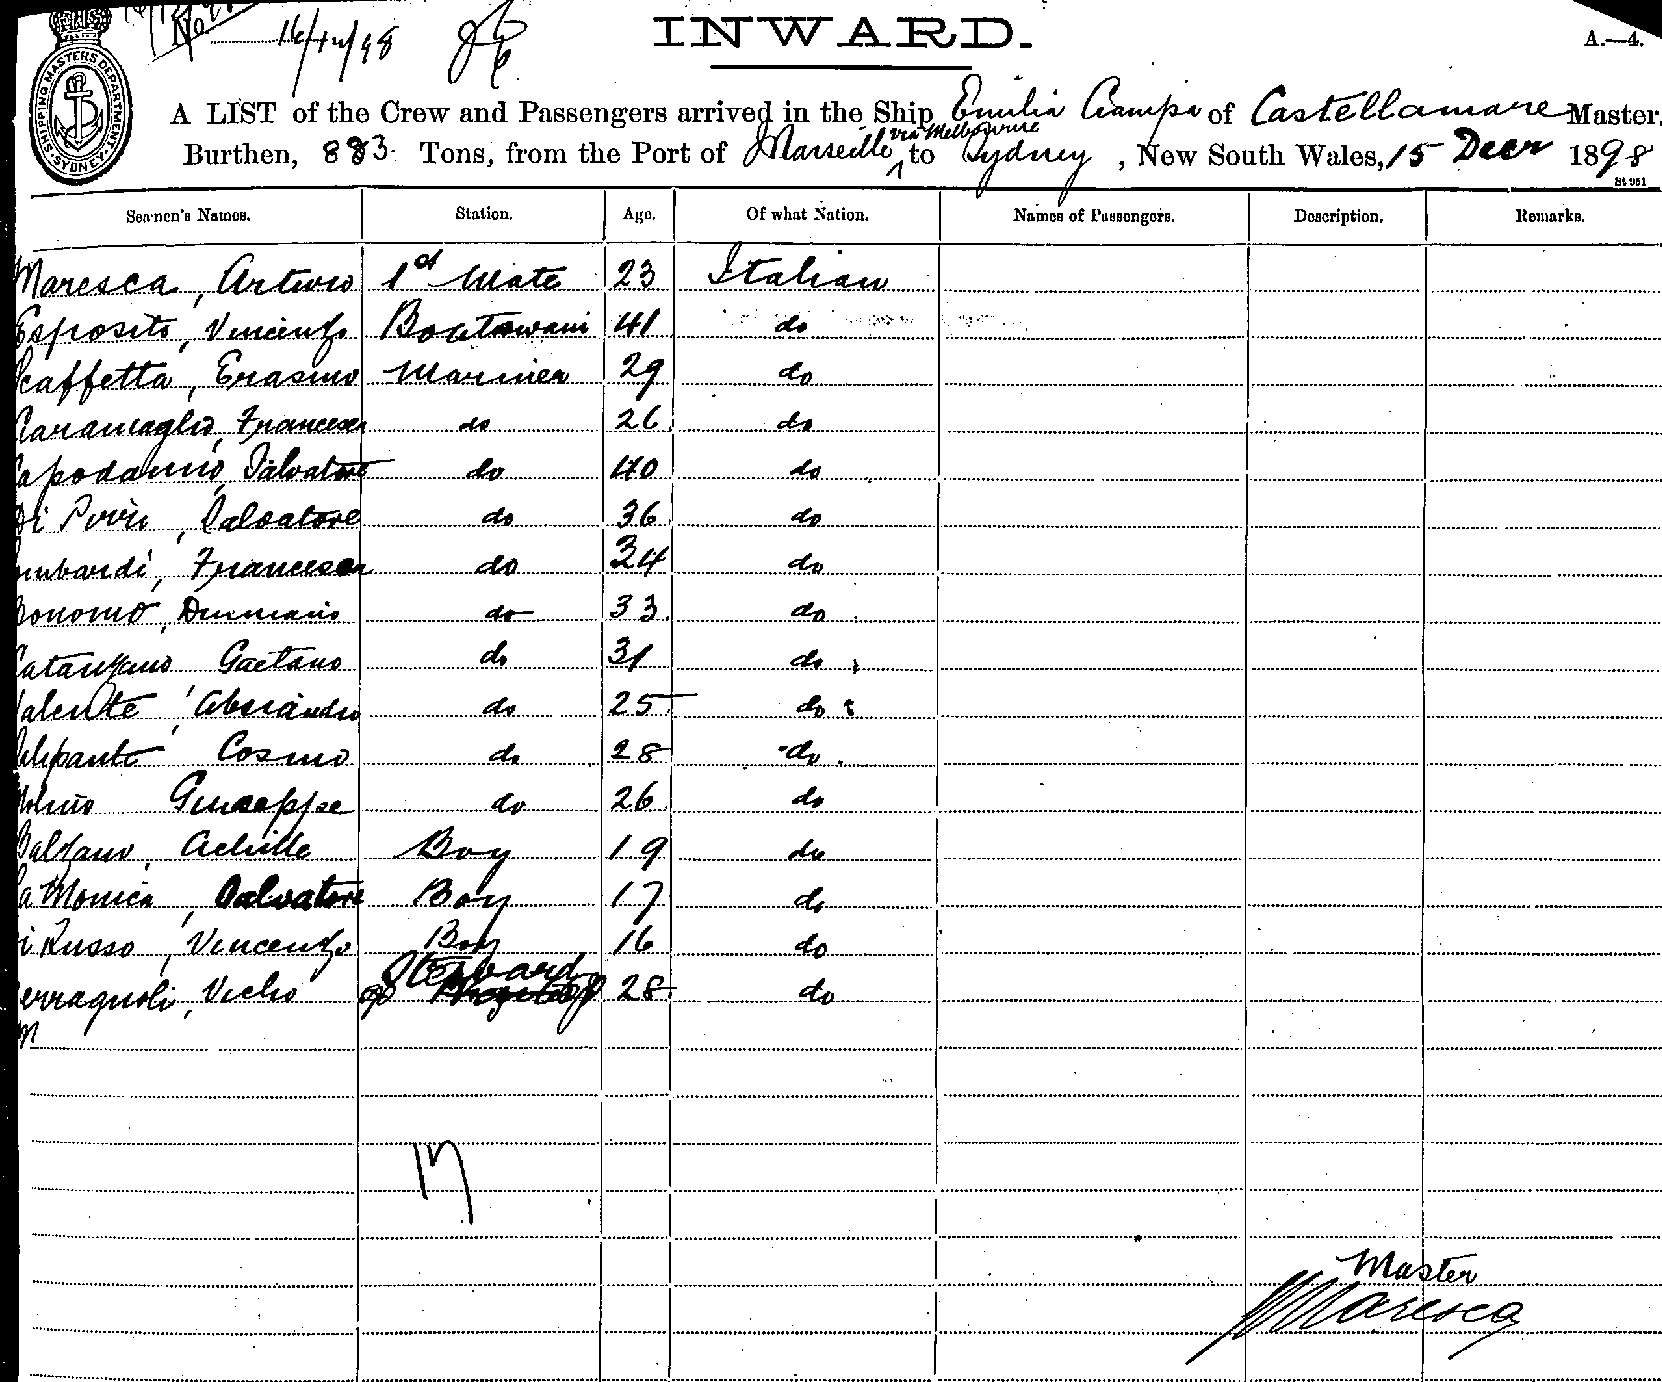 No
16/12/98
INWARD.
A.—4.
SHIPPING MASTERS DEPARTMENT SYDNEY
A LIST of the Crew and Passengers arrived in the Ship Emilia Ciampa of Castellamare Master,
via Melbourne
Burthen, 883 Tons, from the Port of Marseille to Sydney, New South Wales, 15 Decr 1898
St 951
Seamen's Names. Station. Age. Of what Nation. Names of Passengers. Description. Remarks.
Maresca, Arturo 1st Mate 23 Italian
Esposito, Vincenzo Boatswain 41 do
Scaffetta, Erasmo Mariner 29 do
Francesco do 26 do
Capodanno, Salvatore do 40 do
Di Salvatore do 36 do
Lombardi, Francesco do 34 do
Bonomo, do 33 do
Catanzano Gaetano do 31 do
Valente, do 25 do
Cosmo do 28 do
Giuseppe do 26 do
Balzano, Achille Boy 19 do
La Monica, Salvatore Boy 17 do
Di Russo, Vincenzo Boy 16 do
Steward
28 do
17
Master
Maresca